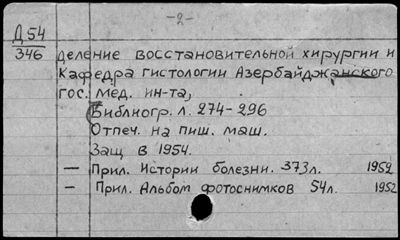 -2-
Д 54
346
деление восстановительной хирургии и
Кафедра гистологии Азербайджанского
гос. мед. ин-та,
Библиогр. л. 274-296
Отпеч. на пиш. маш.
Защ в 1954.
— Прил. Истории болезни. 373л. 1952
— Прил. Альбом фотоснимков 54л. 1952